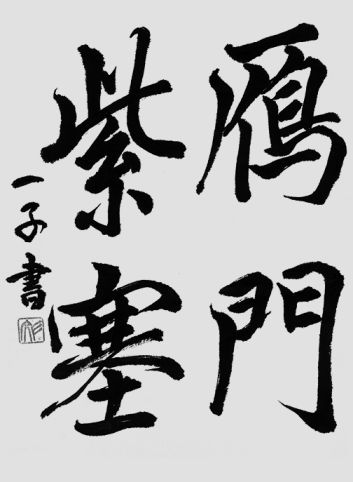 鴈門
紫塞
一子書